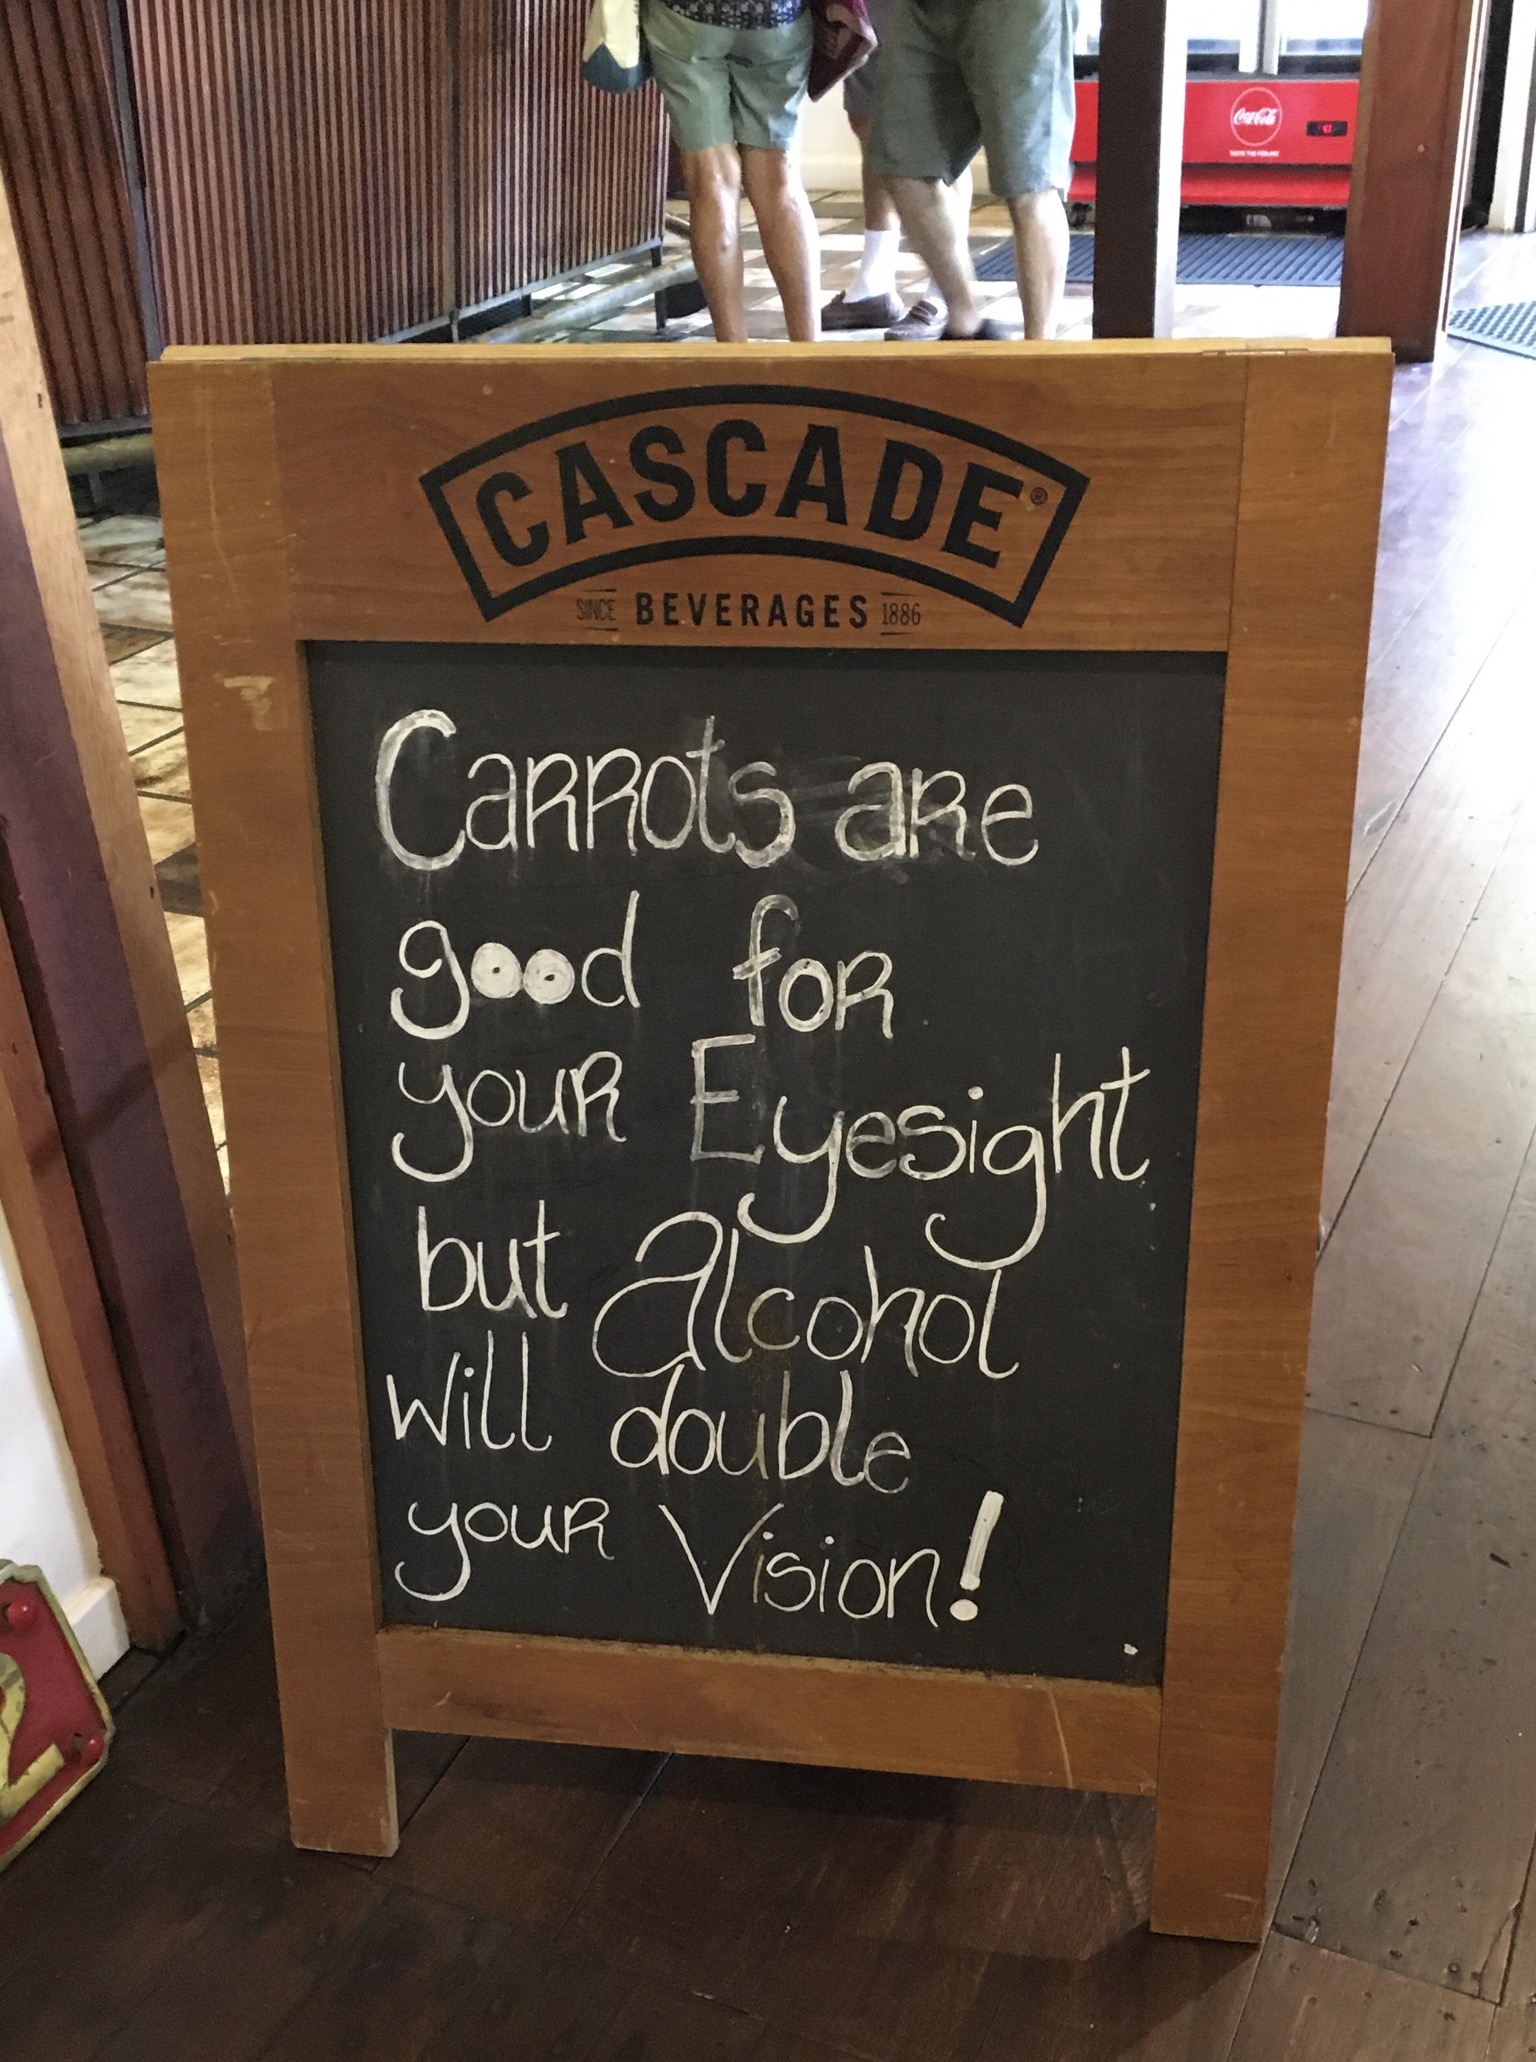 Coca-Cola
TASTE THE FEELING
CASCADE®
SINCE BEVERAGES 1886
Carrots are
good for
your Eyesight
but Alcohol
will double
your Vision!
2